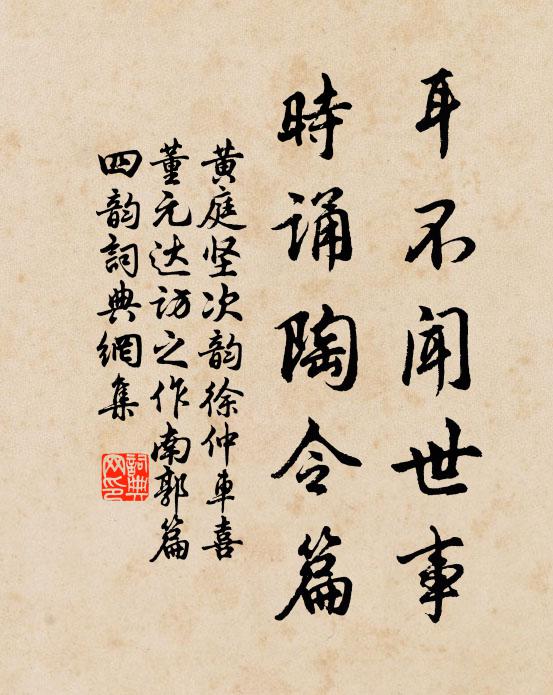 耳不闻世事
時誦陶令篇
黄庭坚次韵徐仲車喜
董元达访之作南郭篇
四韵詞典網集
詞典
网印